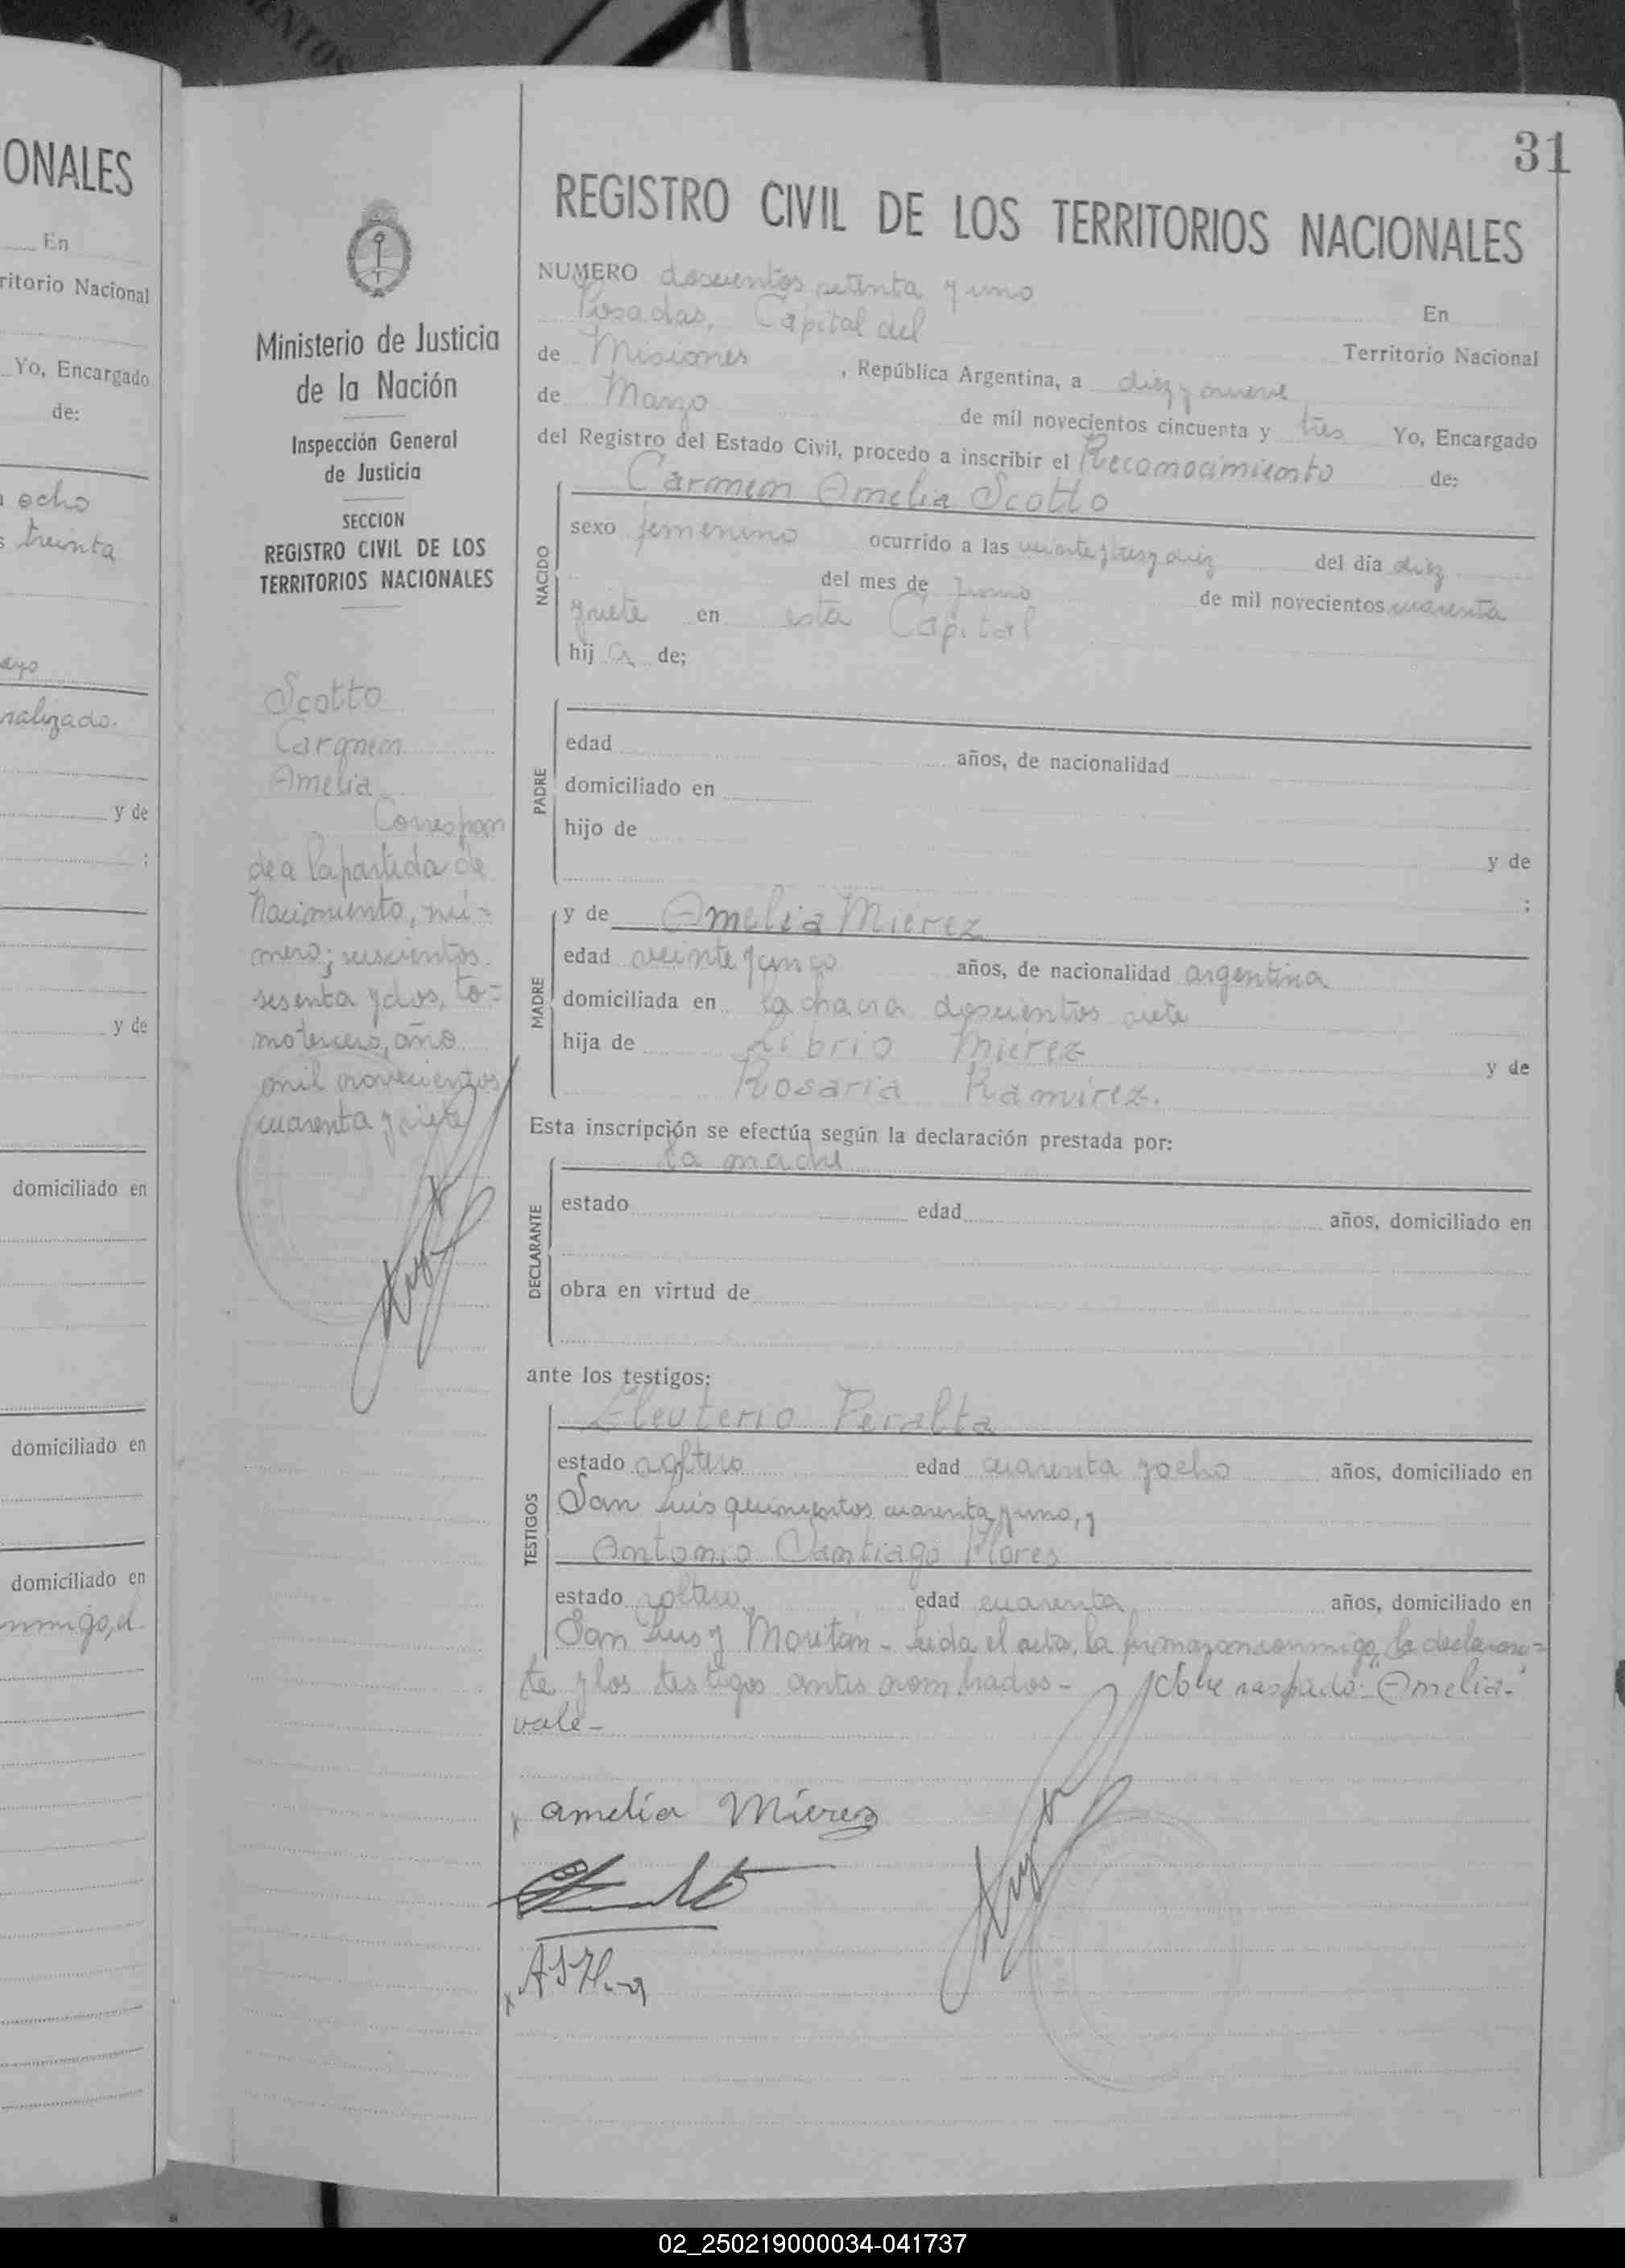 ONALES
En
ritorio Nacional
Yo, Encargado
de:
ocho
treinta
ayo
nalizado.
y de
:
y de
domiciliado en
domiciliado en
domiciliado en
nmigo, el
31
Ministerio de Justicia
de la Nación
Inspección General
de Justicia
SECCION
REGISTRO CIVIL DE LOS
TERRITORIOS NACIONALES
Scotto
Carmen
Amelia
Correspon
de a la partida de
Nacimiento, nú=
mero; seiscientos
sesenta y dos, to=
mo tercero, año
mil novecientos
cuarenta y siete
REGISTRO CIVIL DE LOS TERRITORIOS NACIONALES
NUMERO doscientos setenta y uno En
Posadas, Capital del Territorio Nacional
de Misiones, República Argentina, a diez y nueve
de Marzo de mil novecientos cincuenta y tres Yo, Encargado
del Registro del Estado Civil, procedo a inscribir el Reconocimiento de:
Carmen Amelia Scotto
NACIDO
sexo femenino ocurrido a las veinte y tres y diez del día diez
del mes de Junio de mil novecientos cuarenta
y siete en esta Capital
hija de;
PADRE
edad años, de nacionalidad
domiciliado en
hijo de
y de
:
MADRE
y de Amelia Mierez
edad veinte y cinco años, de nacionalidad argentina
domiciliada en la chacra doscientos siete
hija de Librio Mierez y de
Rosaria Ramírez.
Esta inscripción se efectúa según la declaración prestada por:
la madre
DECLARANTE
estado edad años, domiciliado en
obra en virtud de
ante los testigos:
TESTIGOS
Eleuterio Peralta
estado soltero edad cuarenta y ocho años, domiciliado en
San Luis quinientos cuarenta y uno, y
Antonio Santiago Flores
estado soltero edad cuarenta años, domiciliado en
San Luis y Moritán - Leida el acta, la firmaron conmigo, la declaran=
te y los testigos antes nombrados - sobre raspado: Amelia-
vale-
x amelia Mierez
x
02_250219000034-041737